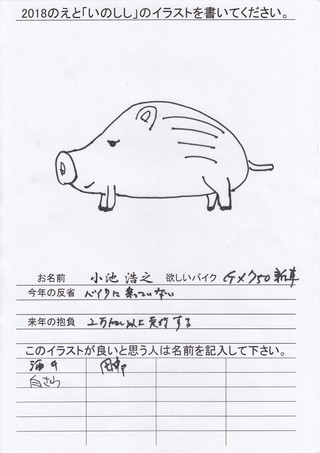 2018のえと「いのしし」のイラストを書いてください。
お名前 小池 浩之 欲しいバイク GX750新車
今年の反省 バイクに乗っていない
来年の抱負 2万km以上走行する
このイラストが良いと思う人は名前を記入して下さい。
酒井